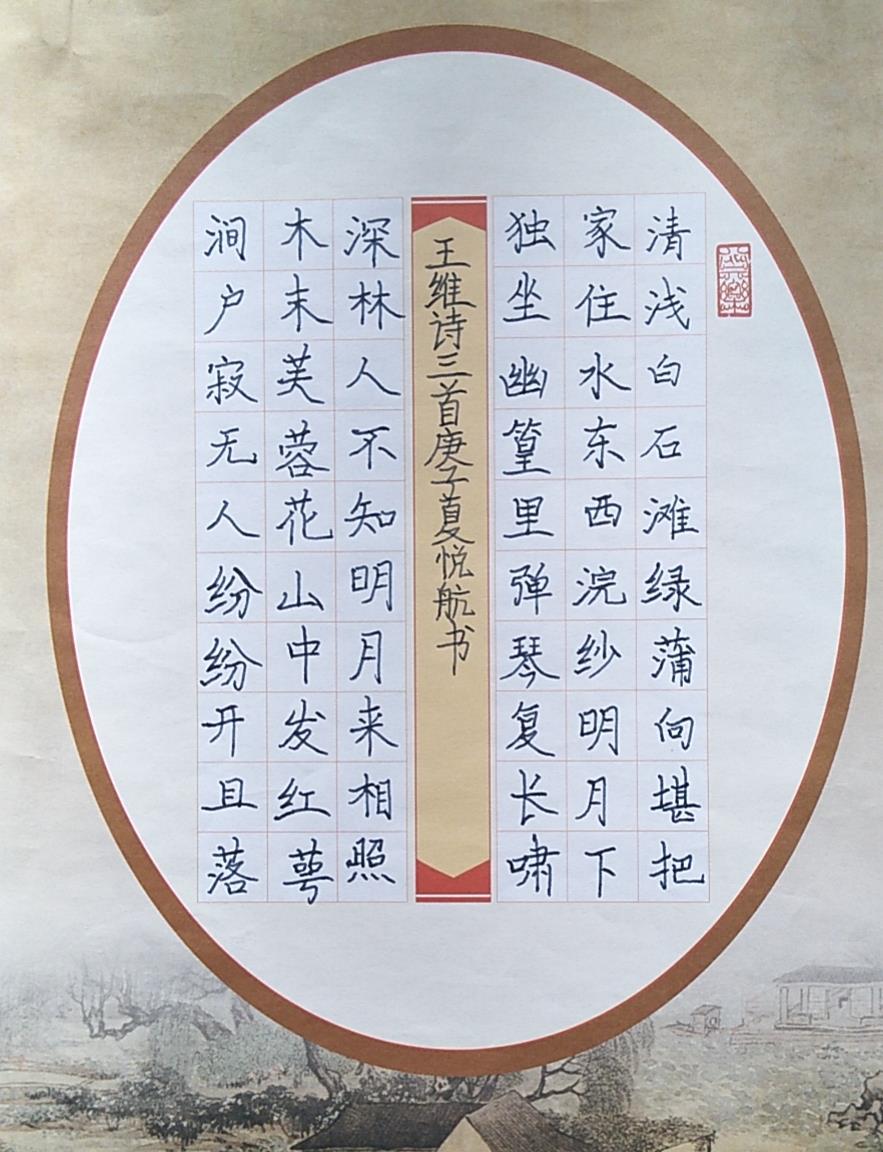 清浅白石滩绿蒲向堪把
家住水东西浣纱明月下
独坐幽篁里弹琴复长啸
王维诗三首庚子夏悦航书
深林人不知明月来相照
木末芙蓉花山中发红萼
涧户寂无人纷纷开且落